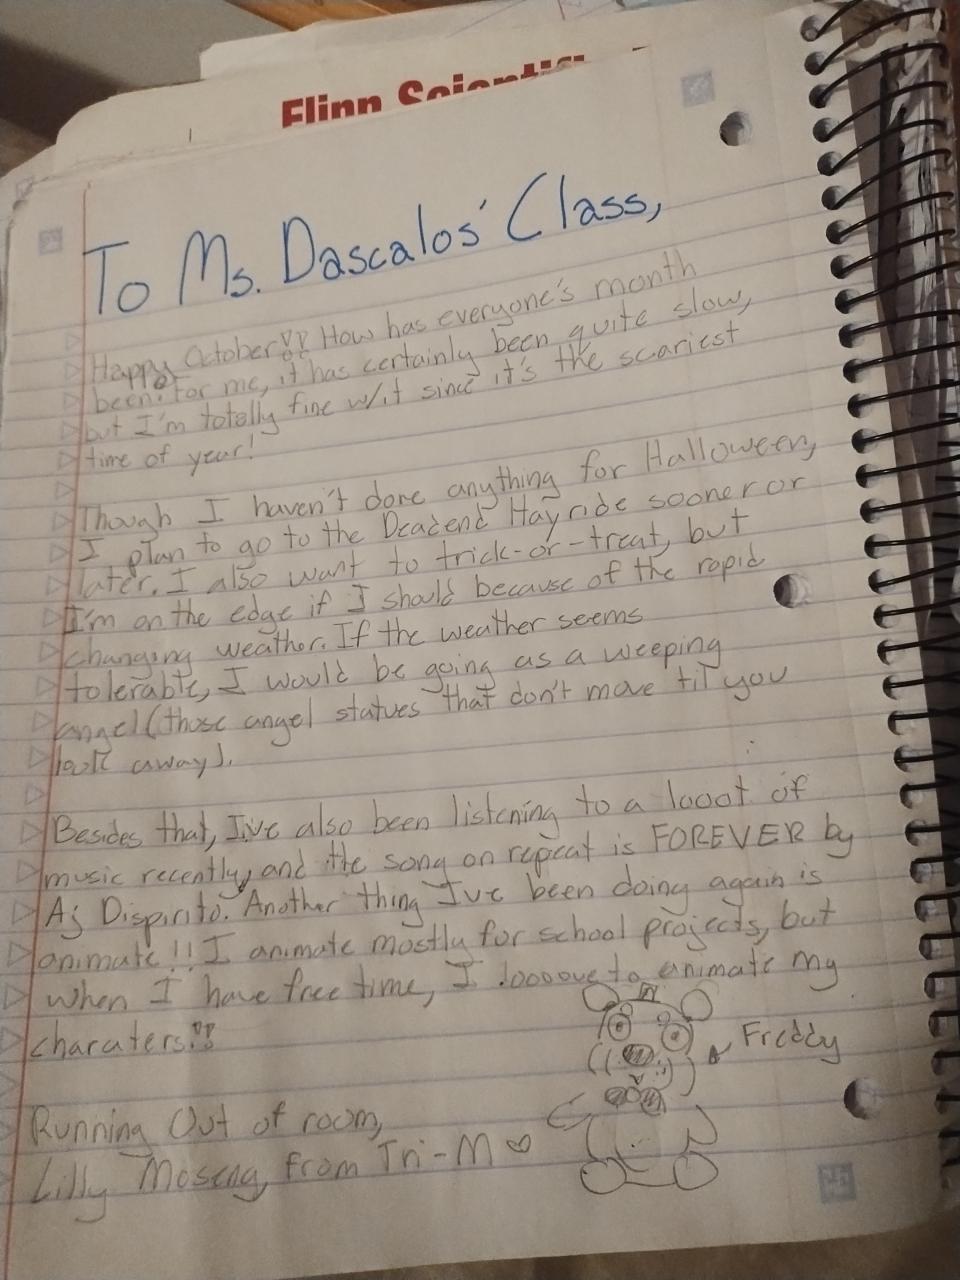 Flinn Scientific
To Ms. Dascalos' Class,
Happy October!! How has everyone's month
been? For me, it has certainly been quite slow,
but I'm totally fine w/it since it's the scariest
time of year!
Though I haven't done anything for Halloween,
I plan to go to the Deadend Hayride sooner or
later. I also want to trick-or-treat, but
I'm on the edge if I should because of the rapid
changing weather. If the weather seems
tolerable, I would be going as a weeping
angel (those angel statues that don't move til you
look away).
Besides that, I've also been listening to a looot of
music recently, and the song on repeat is FOREVER by
Aj Dispirito. Another thing I've been doing again is
animate!! I animate mostly for school projects, but
when I have free time, I loooove to animate my
charaters!!
Freddy
Running Out of room,
Lilly Moseng, from Tri-M ♡